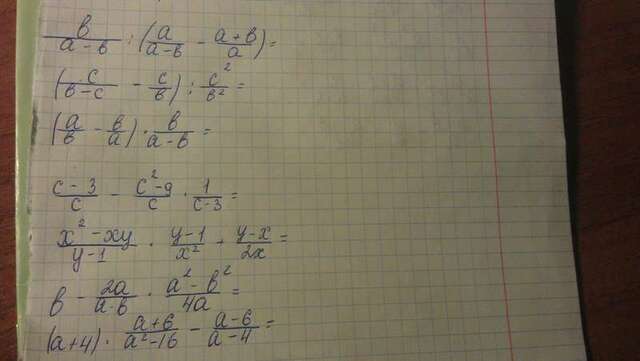 в/(а-в) : (а/(а-в) - (а+в)/а) =
(с/(в-с) - с/в) : с²/в² =
(а/в - в/а) · в/(а-в) =
(с-3)/с - (с²-9)/с · 1/(с-3) =
(х²-ху)/(у-1) · (у-1)/х² + (у-х)/2х =
в - 2а/(а-в) · (а²-в²)/4а =
(а+4) · (а+6)/(а²-16) - (а-6)/(а-4) =